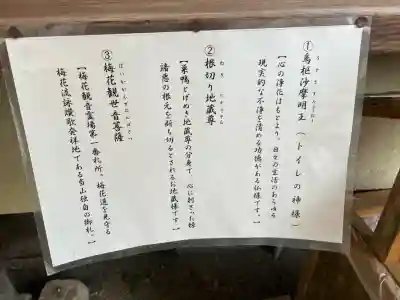 ①烏枢沙摩明王（トイレの神様）
【心の浄化はもとより、日々の生活のあらゆる
現実的な不浄を清める功徳がある仏様です。】
②根切り地蔵尊
【巣鴨とげぬき地蔵尊の分身で、心に刺さった棘
諸悪の根元を断ち切るとされるお地蔵様です。】
③梅花観世音菩薩
ばいかかんぜおんぼさつ
【梅花観音霊場第一番札所。梅花道を見守る
梅花流詠讃歌発祥地である当山独自の御札。】